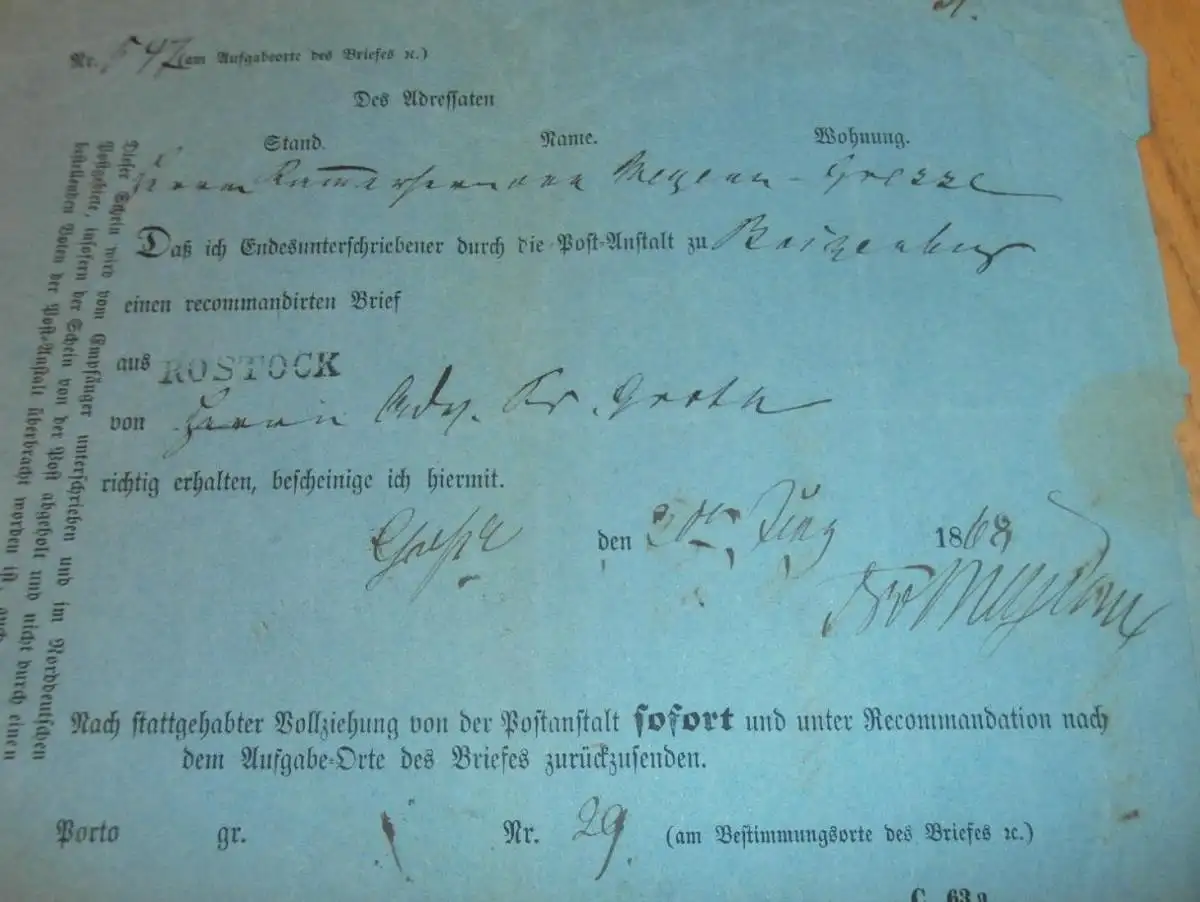 Nr. 547 (am Aufgabeorte des Briefes ꝛc.)
Des Adressaten
Stand. Name. Wohnung.
Herrn Kammerherrn von Gresse
Daß ich Endesunterschriebener durch die Post-Anstalt zu Boizenburg
einen recommandirten Brief
aus ROSTOCK
von Herrn Adv. Dr. Groth
richtig erhalten, bescheinige ich hiermit.
den Juny 1868
Nach stattgehabter Vollziehung von der Postanstalt sofort und unter Recommandation nach
dem Aufgabe-Orte des Briefes zurückzusenden.
Porto gr. Nr. 29. (am Bestimmungsorte des Briefes ꝛc.)
C. 63a
Dieser Schein wird vom Empfänger unterschrieben und im Norddeutschen
Postgebiete, insofern der Schein von der Post abgeholt und nicht durch einen
bestellenden Boten der Post-Anstalt überbracht worden ist, auch